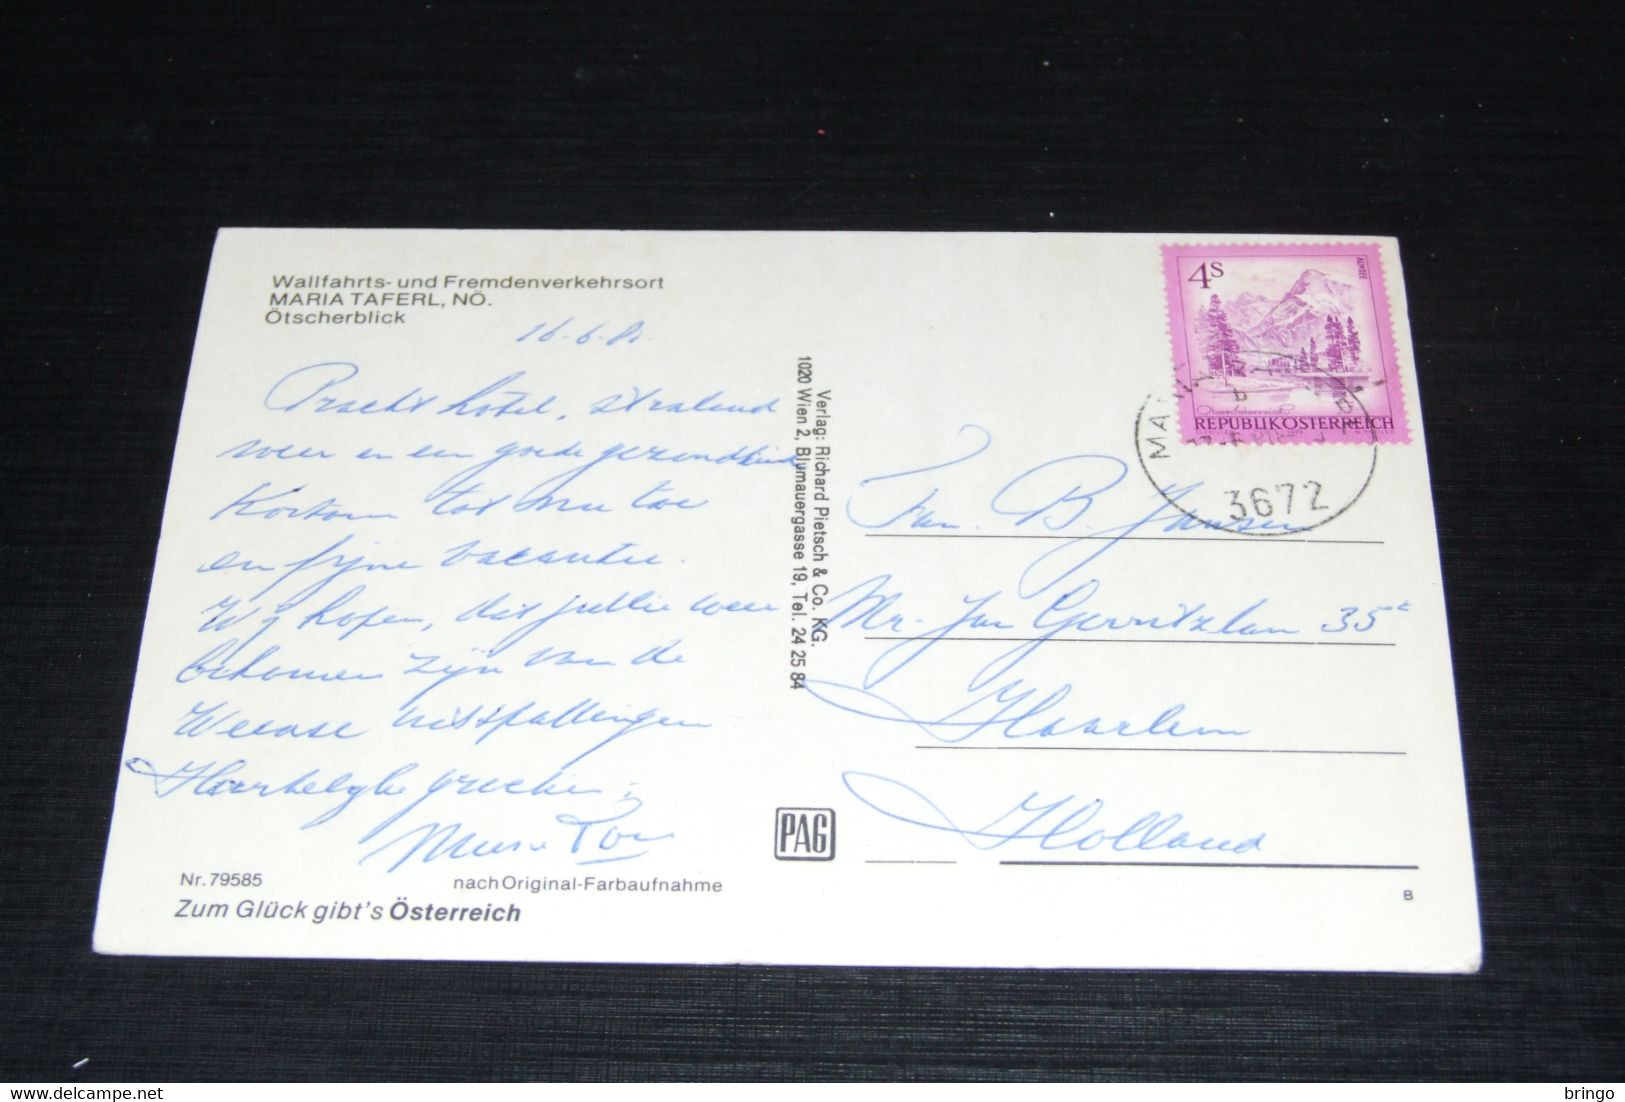 Wallfahrts- und Fremdenverkehrsort
MARIA TAFERL, NÖ.
Ötscherblick
16-6-81.
Pracht hotel, stralend
weer en een goede gezondheid
Kortom tot nu toe
en fijne vacantie.
Wij hopen, dat jullie weer
bekomen zijn van de
Weense uitspattingen
Hartelijke groeten,
Nr. 79585
nach Original-Farbaufnahme
Zum Glück gibt's Österreich
Verlag: Richard Pietsch & Co. KG.
1020 Wien 2, Blumauergasse 19, Tel. 24 25 84
PAG
4S
ALMSEE
Oberösterreich
REPUBLIK ÖSTERREICH
3672
Fam. B. Jansen
Mr. Jan Gerritzlaan 35
Haarlem
Holland
B
delcampe.net
bringo